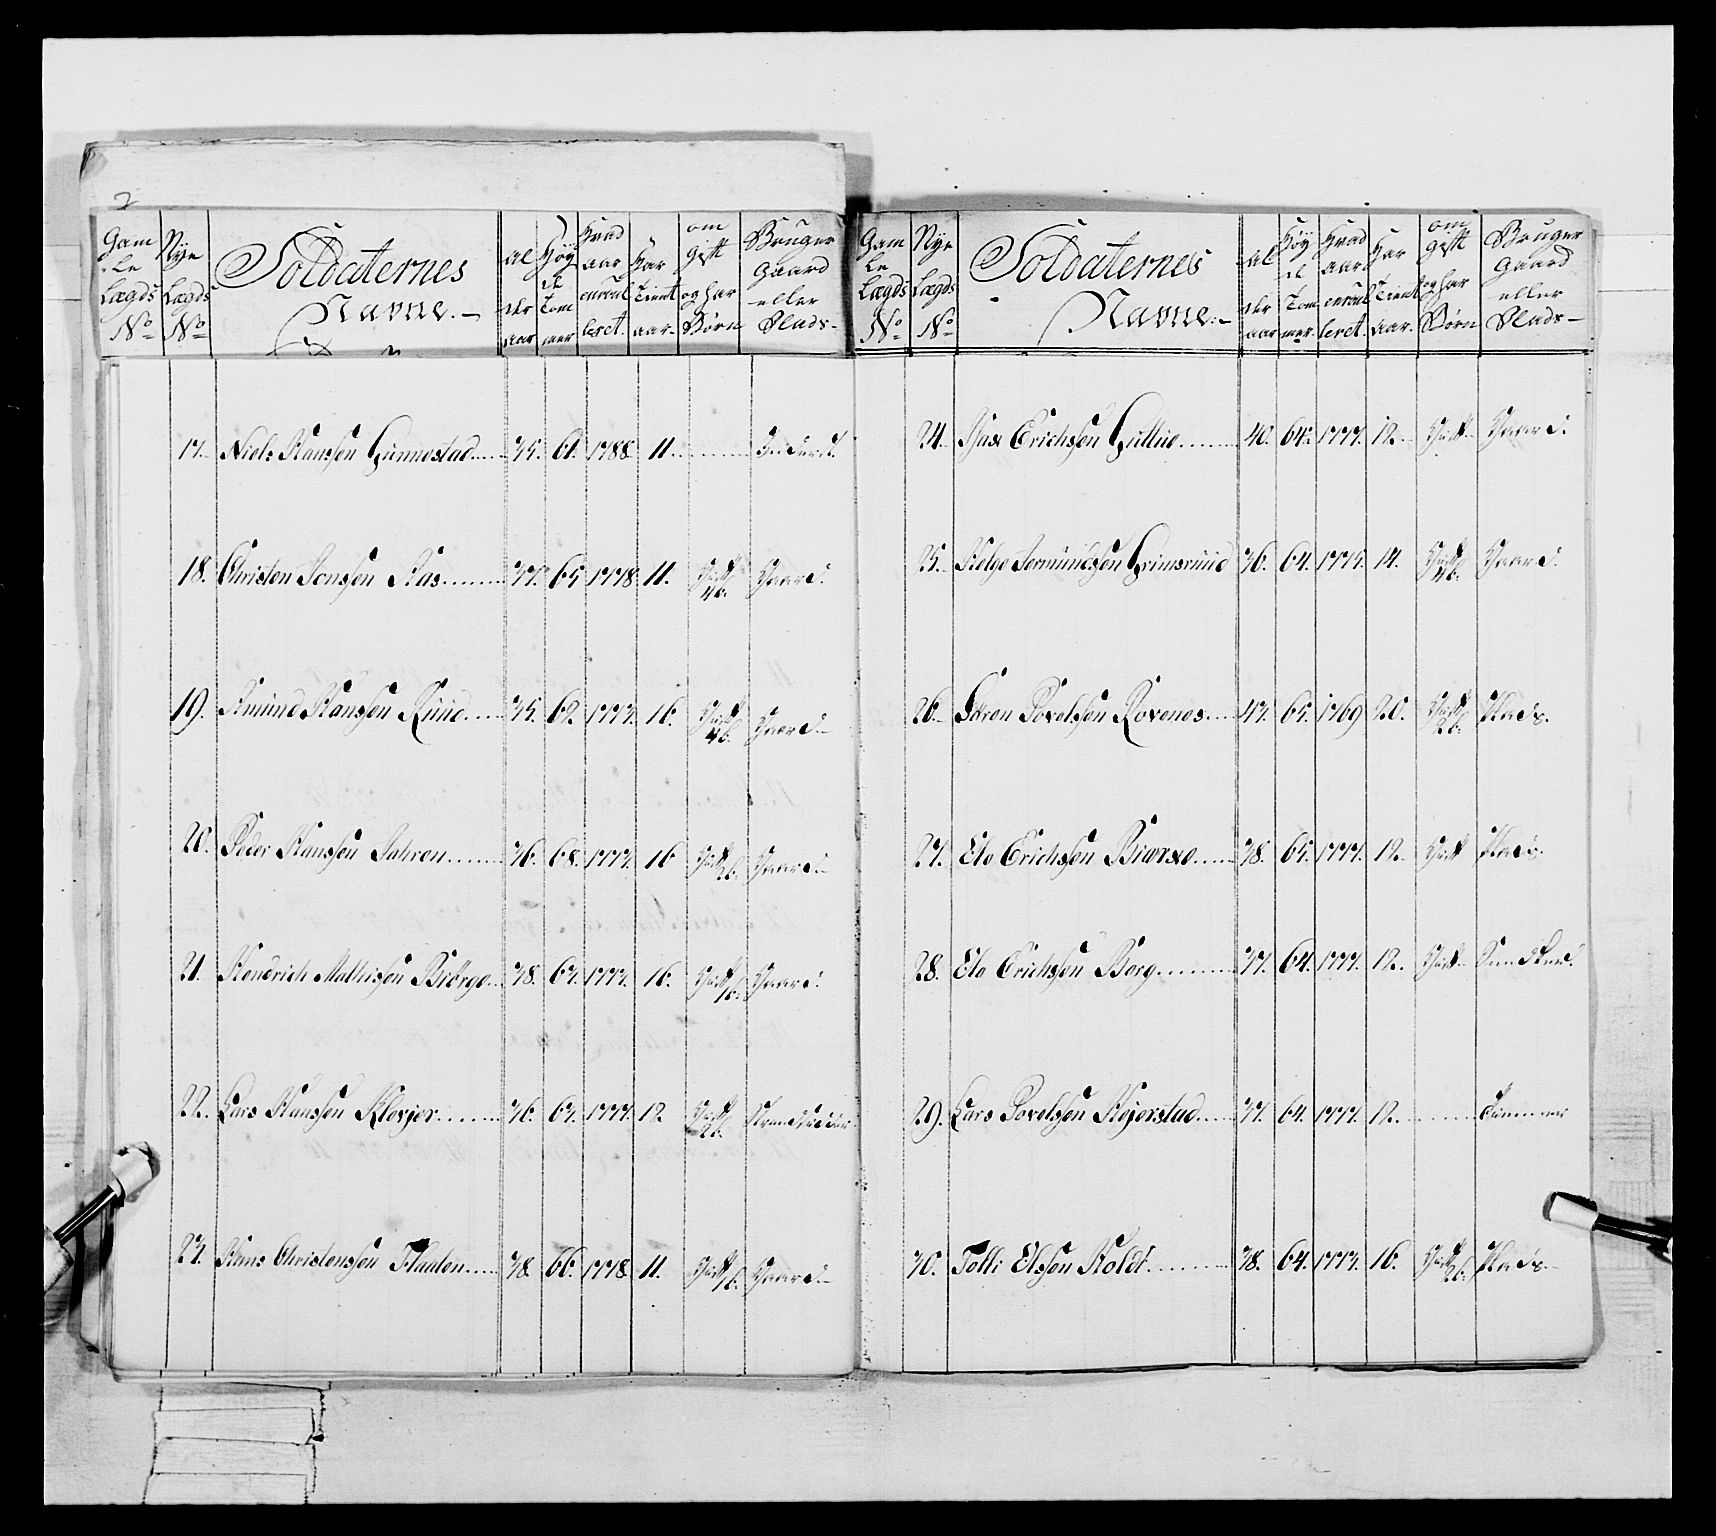 2
Gam le Lægds No Nye Lægds No Soldaternes Navne al der aar Høy de Tom mer hvad aar enroul leret har Tient aar om gift og har Børn Bruger gaard eller Plads
17. Niels Hanssen Gunnestad 35. 61. 1788. 11. Inderst
18. Christen Jenssen Aas 37. 65 1778. 11. Gift 4 b. Gaard
19. Amund Hanssen Ruud 35. 62. 1773. 16. Gift 4 b. Gaard
20. Peder Hanssen Sahren 36. 68. 1773. 16 Gift 2 b. Gaard
21. Hendrich Mathissen Biörge 38. 63. 1773. 16. Gift 1 b. Gaard
22. Lars Hanssen Klevjer 36. 63. 1777. 12 Gift 2 b. Strandsidder
23. Hans Christenssen Flaaten 38. 66. 1778. 11. Gift 1 b. Gaard
Gam le Lægds No Nye Lægds No Soldaternes Navne al der aar Høy de Tom mer hvad aar enroul leret har Tient aar om gift og har Børn Bruger Gaard eller Plads
24. Aase Erichssen Gullue 40. 64. 1777. 12. Gift Gaard
25. Helge Semundssen Grimsruud 36. 64. 1775. 14. Gift 4 b. Gaard
26. Sören Povelssen Rovenes 47. 65. 1769 20. Gift 2 b. Plads
27. Ele Erichssen 38. 65. 1777. 12. Gift Plads
28. Ele Erichssen Berg 37. 64. 1777. 12. Gift
29. Lars Povelssen Hejerstad 37. 64. 1777. 12.
30. Tolli Elssen Holdt 38. 64. 1773. 16. Gift 2 b. Plads